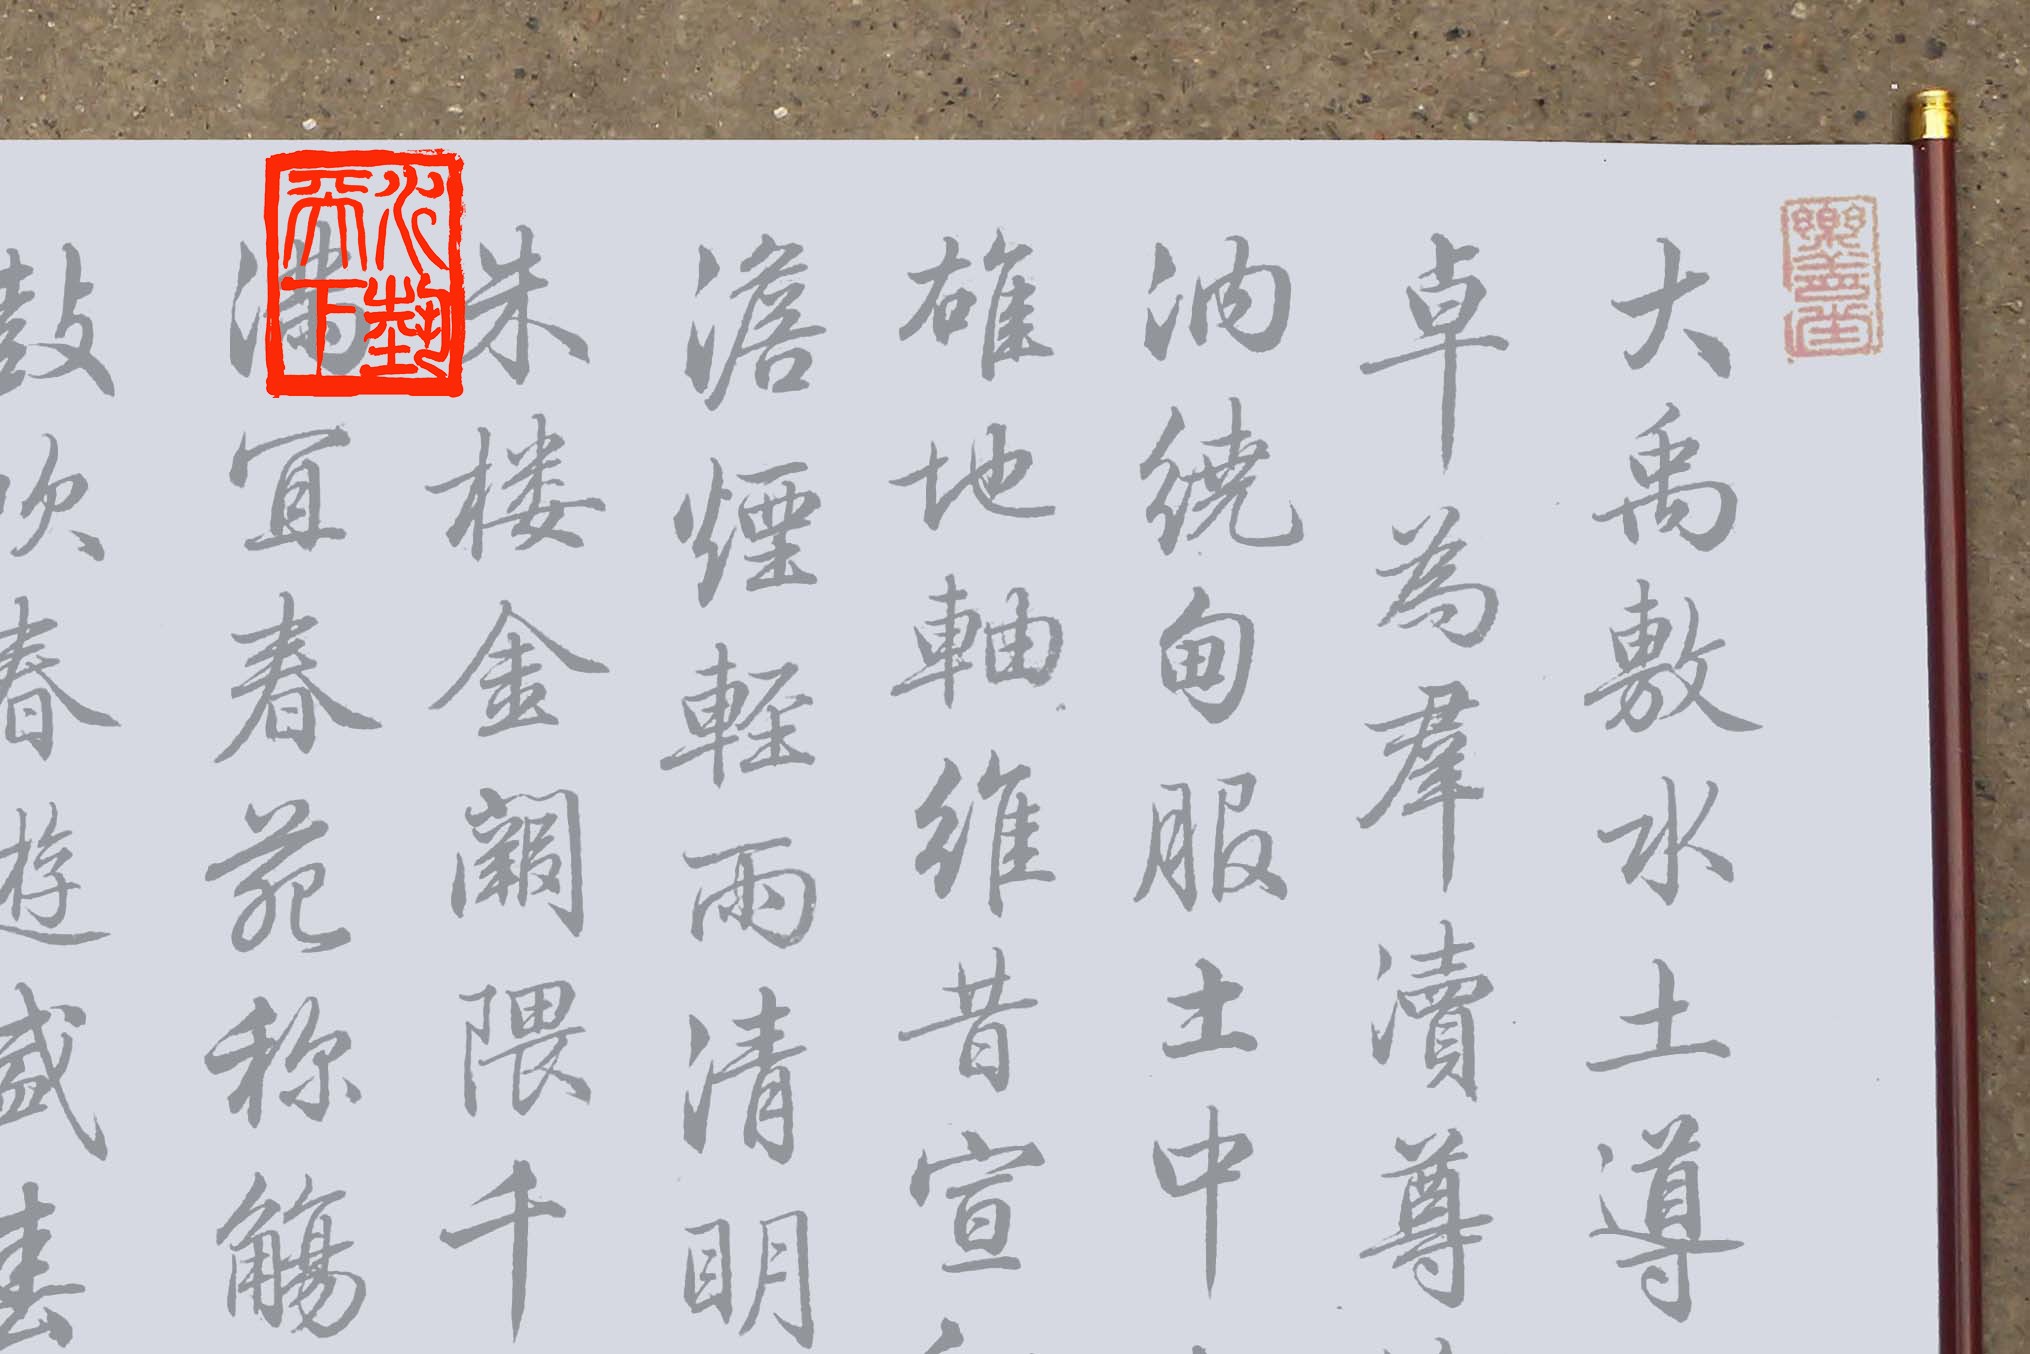 樂善堂
大禹敷水土導
卓為羣瀆尊
汭繞甸服土中
雄地軸維昔宣
澹煙輕雨清明
朱楼金闕隈千
天下
满宜春苑称觴
鼓吹春遊盛